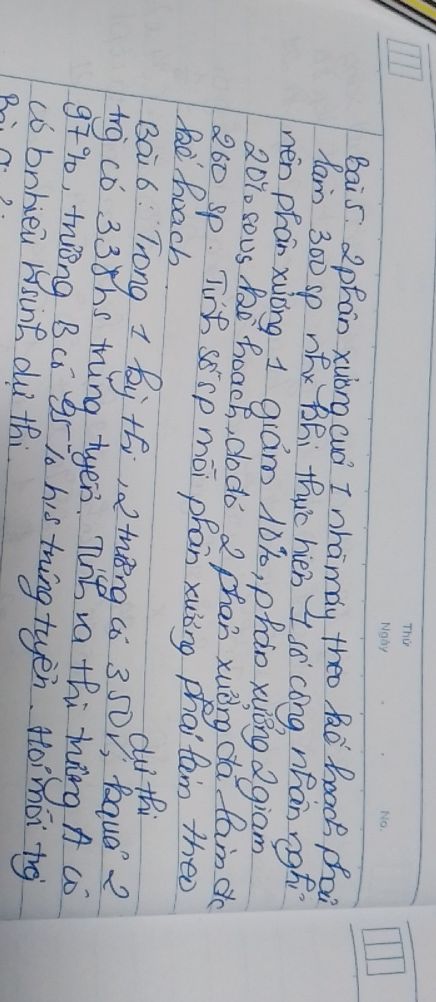 Thứ
Ngày
No.
Bài 5: 2 phân xưởng của 1 nhà máy theo kế hoạch phải
làm 300 sp nhx khi thực hiện 1 số công nhân nghỉ
nên phân xưởng 1 giảm 10%, phân xưởng 2 giảm
20% so vs kế hoạch, do đó 2 phân xưởng đã làm đc
260 sp. Tính số sp mỗi phân xưởng phải làm theo
kế hoạch.
Bài 6: Trong 1 kỳ thi, 2 trường có 350 dự thi, kquả 2
trg có 338 hs trúng tuyển. Tính ra thì trường A có
97%, trường B có 95% hs trúng tuyển. Hỏi mỗi trg
có bnhiêu Hsinh dự thi.